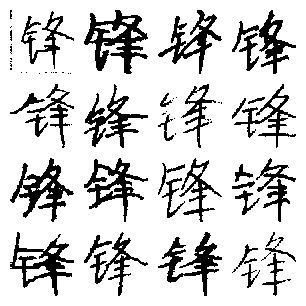 锋锋锋锋
锋锋锋锋
锋锋锋锋
锋锋锋锋